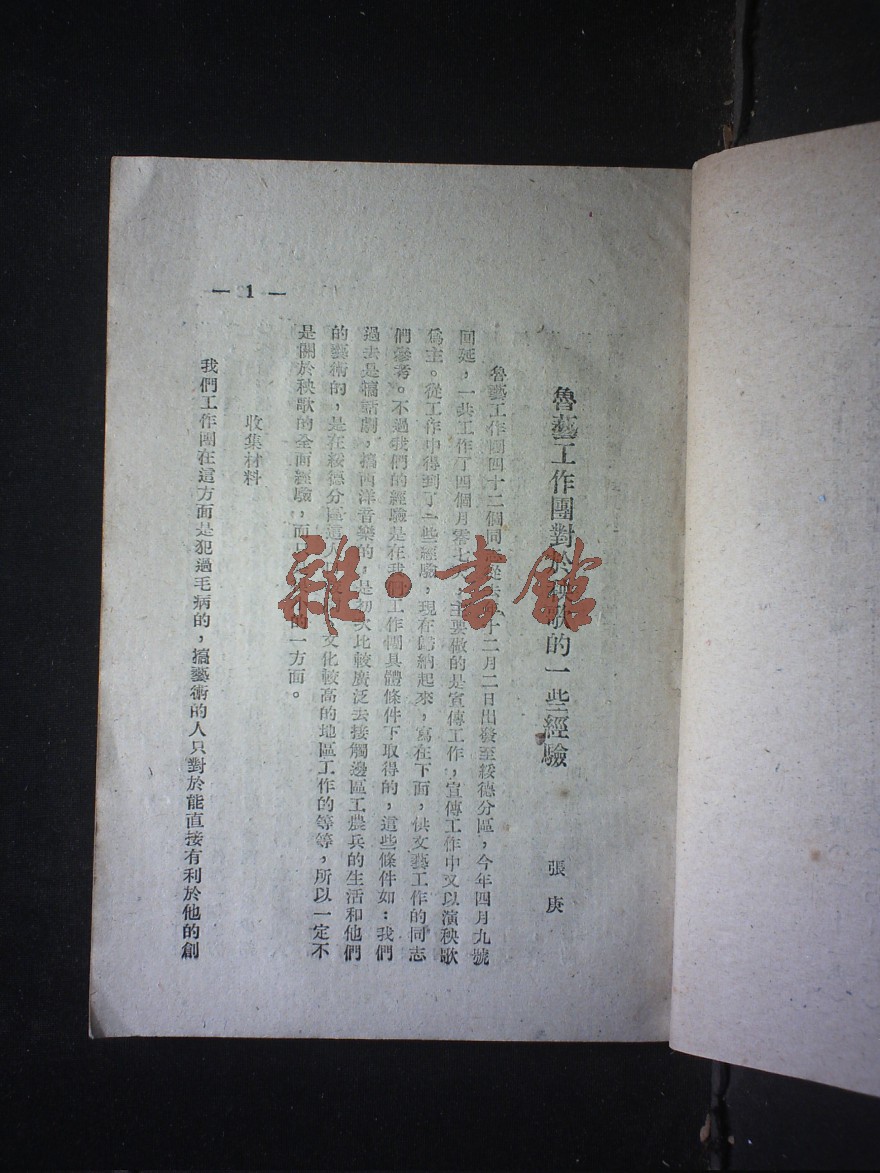 魯藝工作團對於秧歌的一些經驗
張庚
魯藝工作團四十二個同 從去 十二月二日出發至綏德分區，今年四月九號
回延，一共工作了四個月零七 ，主要做的是宣傳工作，宣傳工作中又以演秧歌
爲主。從工作中得到了一些經驗，現在歸納起來，寫在下面，供文藝工作的同志
們參考。不過我們的經驗是在我們工作團具體條件下取得的，這些條件如：我們
過去是搞話劇，搞西洋音樂的，是初次比較廣泛去接觸邊區工農兵的生活和他們
的藝術的，是在綏德分區這 文化較高的地區工作的等等，所以一定不
是關於秧歌的全面經驗，而只 的一方面。
收集材料
我們工作團在這方面是犯過毛病的，搞藝術的人只對於能直接有利於他的創
— 1 —
雜·書館